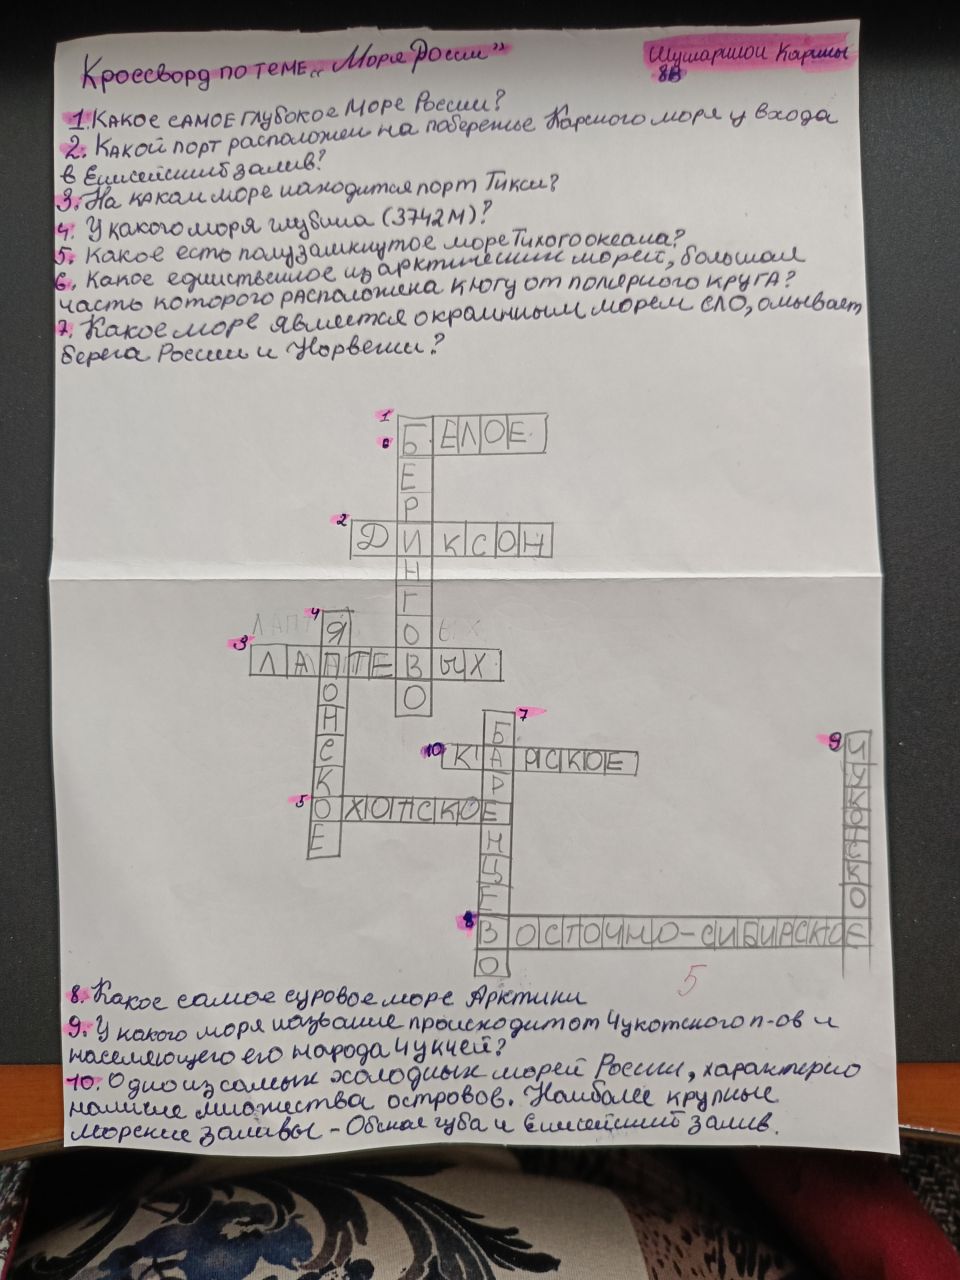 Кроссворд по теме „Моря России”
Шушариной Карины
8В
1. Какое самое глубокое море России?
2. Какой порт расположен на побережье Карского моря у входа
в Енисейский залив?
3. На каком море находится порт Тикси?
4. У какого моря глубина (3742м)?
5. Какое есть полузамкнутое море Тихого океана?
6. Какое единственное из арктических морей, большая
часть которого расположена к югу от полярного круга?
7. Какое море является окраинным морем СЛО, омывает
берега России и Норвегии?
1
6 БЕЛОЕ
БЕРИНГОВО
2 ДИКСОН
4 ЯПОНСКОЕ
3 ЛАПТЕВЫХ
7 БАРЕНЦЕВО
10 КАРСКОЕ
9 ЧУКОТСКОЕ
5 ОХОТСКОЕ
8 ВОСТОЧНО-СИБИРСКОЕ
5
8. Какое самое суровое море Арктики
9. У какого моря название происходит от Чукотского п-ов и
населяющего его народа Чукчей?
10. Одно из самых холодных морей России, характерно
наличие множества островов. Наиболее крупные
морские заливы - Обская губа и Енисейский залив.